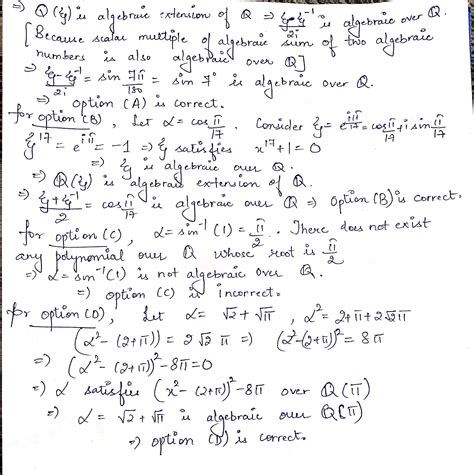 ⇒ Q(ξ) is algebraic extension of Q ⇒ (ξ-ξ⁻¹)/2i is algebraic over Q.
[Because scalar multiple of algebraic sum of two algebraic
numbers is also algebraic over Q]
⇒ (ξ-ξ⁻¹)/2i = sin 7π/180 = sin 7° is algebraic over Q.
⇒ option (A) is correct.
for option (B), Let α = cos π/17. Consider ξ = e^(iπ/17) = cos π/17 + i sin π/17
ξ¹⁷ = e^(iπ) = -1 ⇒ ξ satisfies x¹⁷+1=0
⇒ ξ is algebraic over Q.
⇒ Q(ξ) is algebraic extension of Q.
⇒ (ξ+ξ⁻¹)/2 = cos π/17 is algebraic over Q ⇒ option (B) is correct.
for option (C), α = sin⁻¹(1) = π/2. There does not exist
any polynomial over Q whose root is π/2
⇒ α = sin⁻¹(1) is not algebraic over Q.
⇒ option (C) is incorrect.
for option (D), Let α = √2 + √π, α² = 2+π+2√2π
(α² - (2+π)) = 2√2π ⇒ (α² - (2+π))² = 8π
⇒ (α² - (2+π))² - 8π = 0
⇒ α satisfies (x² - (2+π))² - 8π over Q(π)
⇒ α = √2 + √π is algebraic over Q(π)
⇒ option (D) is correct.